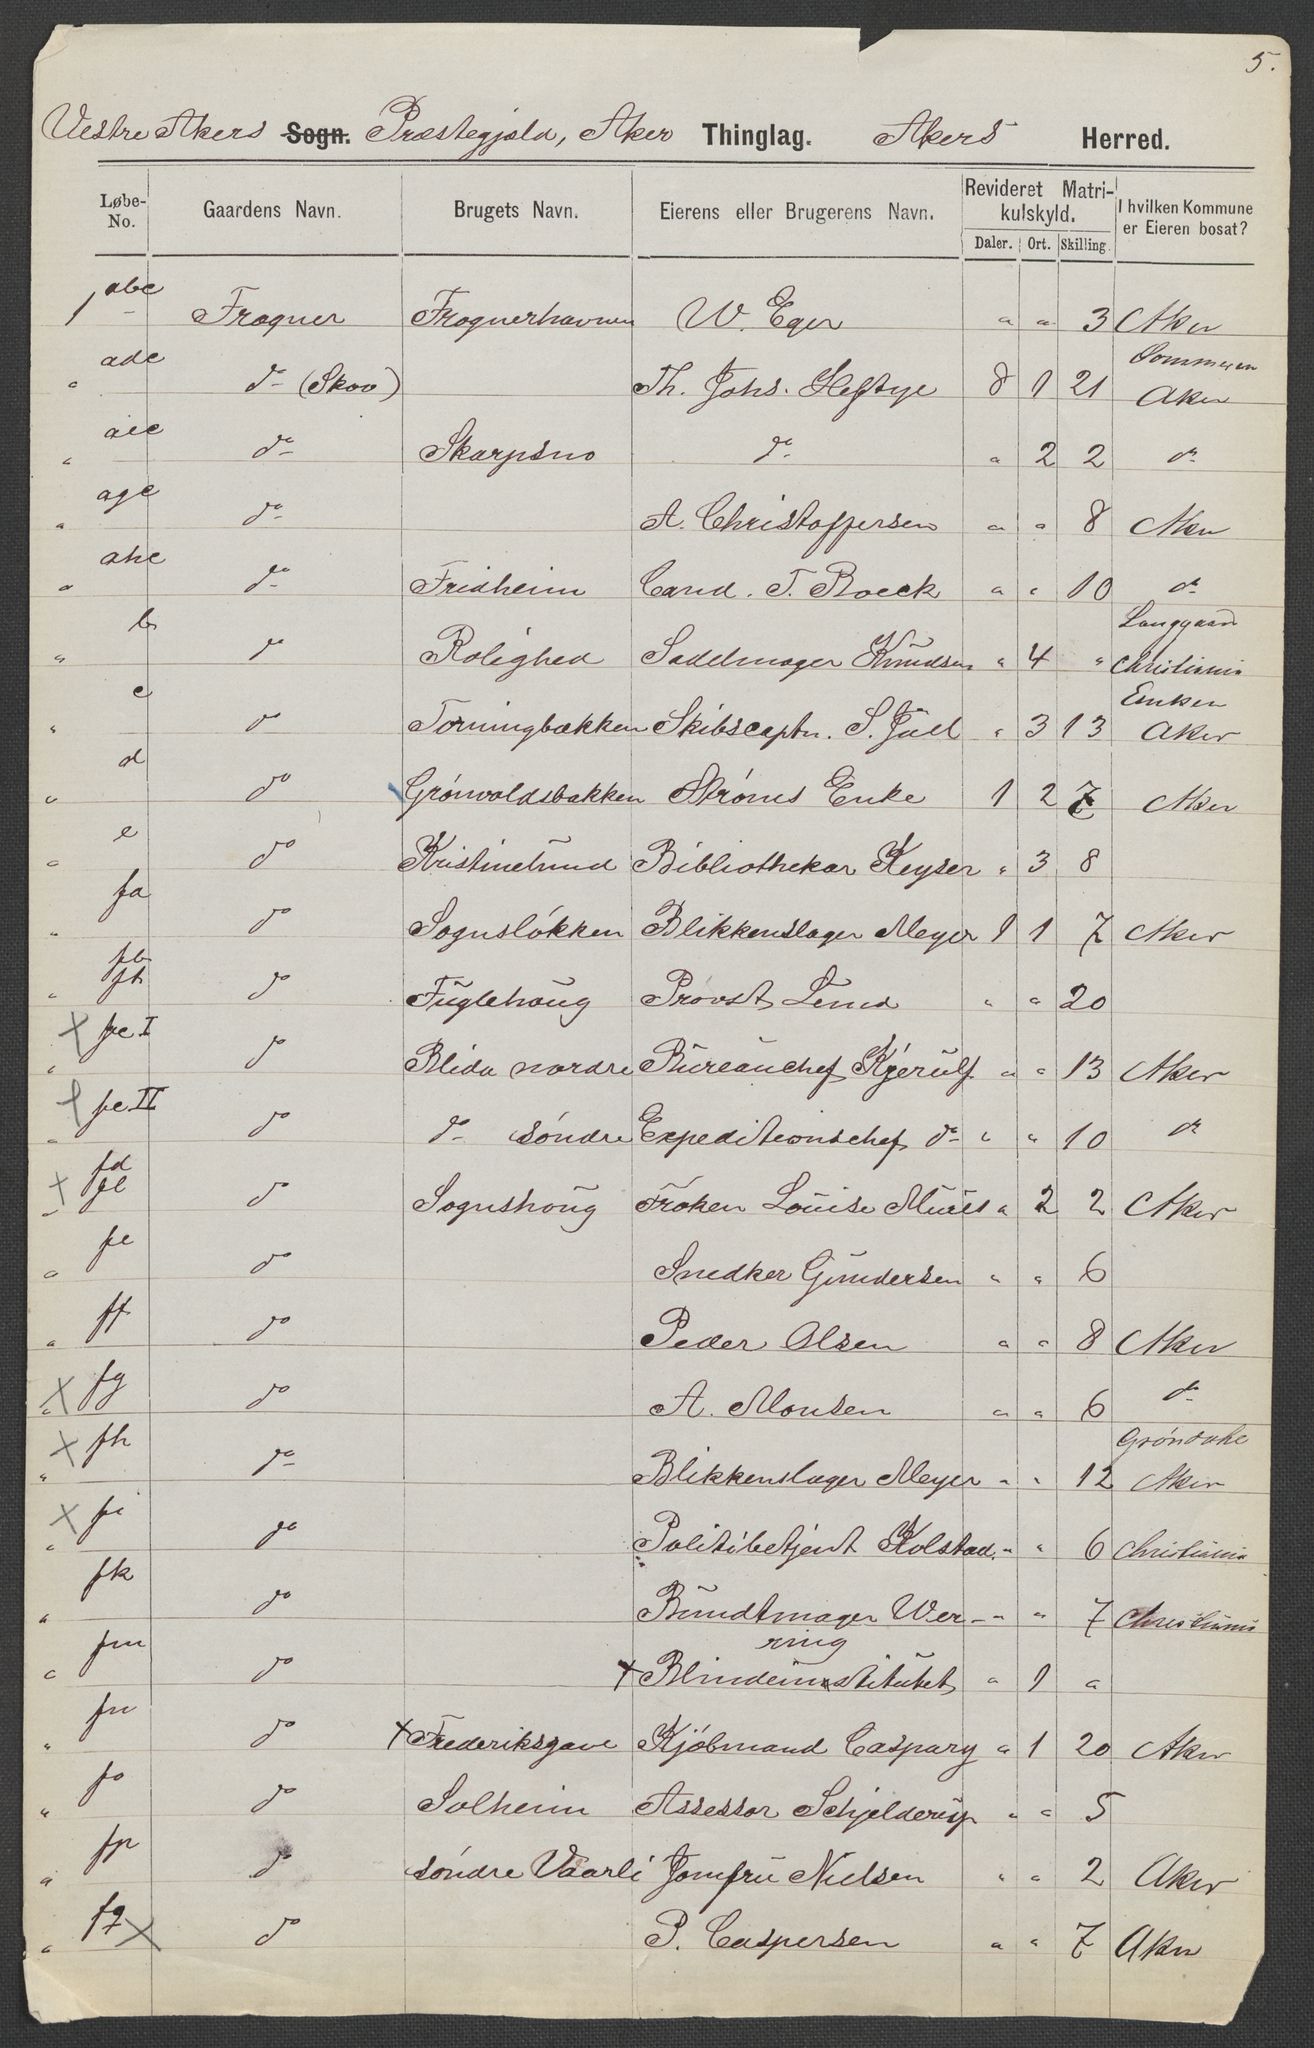 5.
Vestre Akers Sogn. Præstegjæld, Aker Thinglag. Akers Herred.
Løbe-No. Gaardens Navn. Brugets Navn. Eierens eller Brugerens Navn. Revideret Matrikulskyld. I hvilken Kommune er Eieren bosat?
Daler. Ort. Skilling.
1 abc Frogner Frognerhavnen W. Eger " " 3 Aker
" adc do (Skov) Th. Johs. Heftye 8 1 21 Sommeren Aker
" aec do Skarpsno do " 2 2 do
" agc do A. Christoffersen " " 8 Aker
" ahc do Fridheim Cand. T. Boeck " " 10 do
" b do Rolighed Sadelmager Knudsen " 4 " Langgaard Christiania
" c do Torningbakken Skibscaptn. S. Juell " 3 13 Enken Aker
" d do Grönvoldsbakken Ströms Enke 1 2 7 Aker
" e do Kristinelund Bibliothekar Keyser " 3 8
" fa do Sognsløkken Blikkenslager Meyer 1 1 7 Aker
" fb do Fuglehaug Provst Lund " " 20
" X fc I do Blida nordre Bureauchef Kjerulf " " 13 Aker
" fc II do do söndre Expeditionschef do " " 10 do
" X fd do Sognshoug Fröken Louise " 2 2 Aker
" fe do Snedker Gundersen " " 6
" ff do Peder Olsen " " 8 Aker
" X fg do A. Monsen " " 6 do
" X fh do Blikkenslager Meyer " " 12 Gröndahl Aker
" X fi do Politibetjent Kolstad " " 6 Christiania
" fk do Bundtmager Werring " " 7 Christiania
" fm do X Blindeinstitutet " 1 "
" fn do X Frederiksgave Kjöbmand Caspary " 1 20 Aker
" fo do Solheim Assessor Schjelderup " " 5
" fp do söndre Vaarli Jomfru Nielsen " " 2 Aker
" fq X do P. Caspersen " " 7 Aker